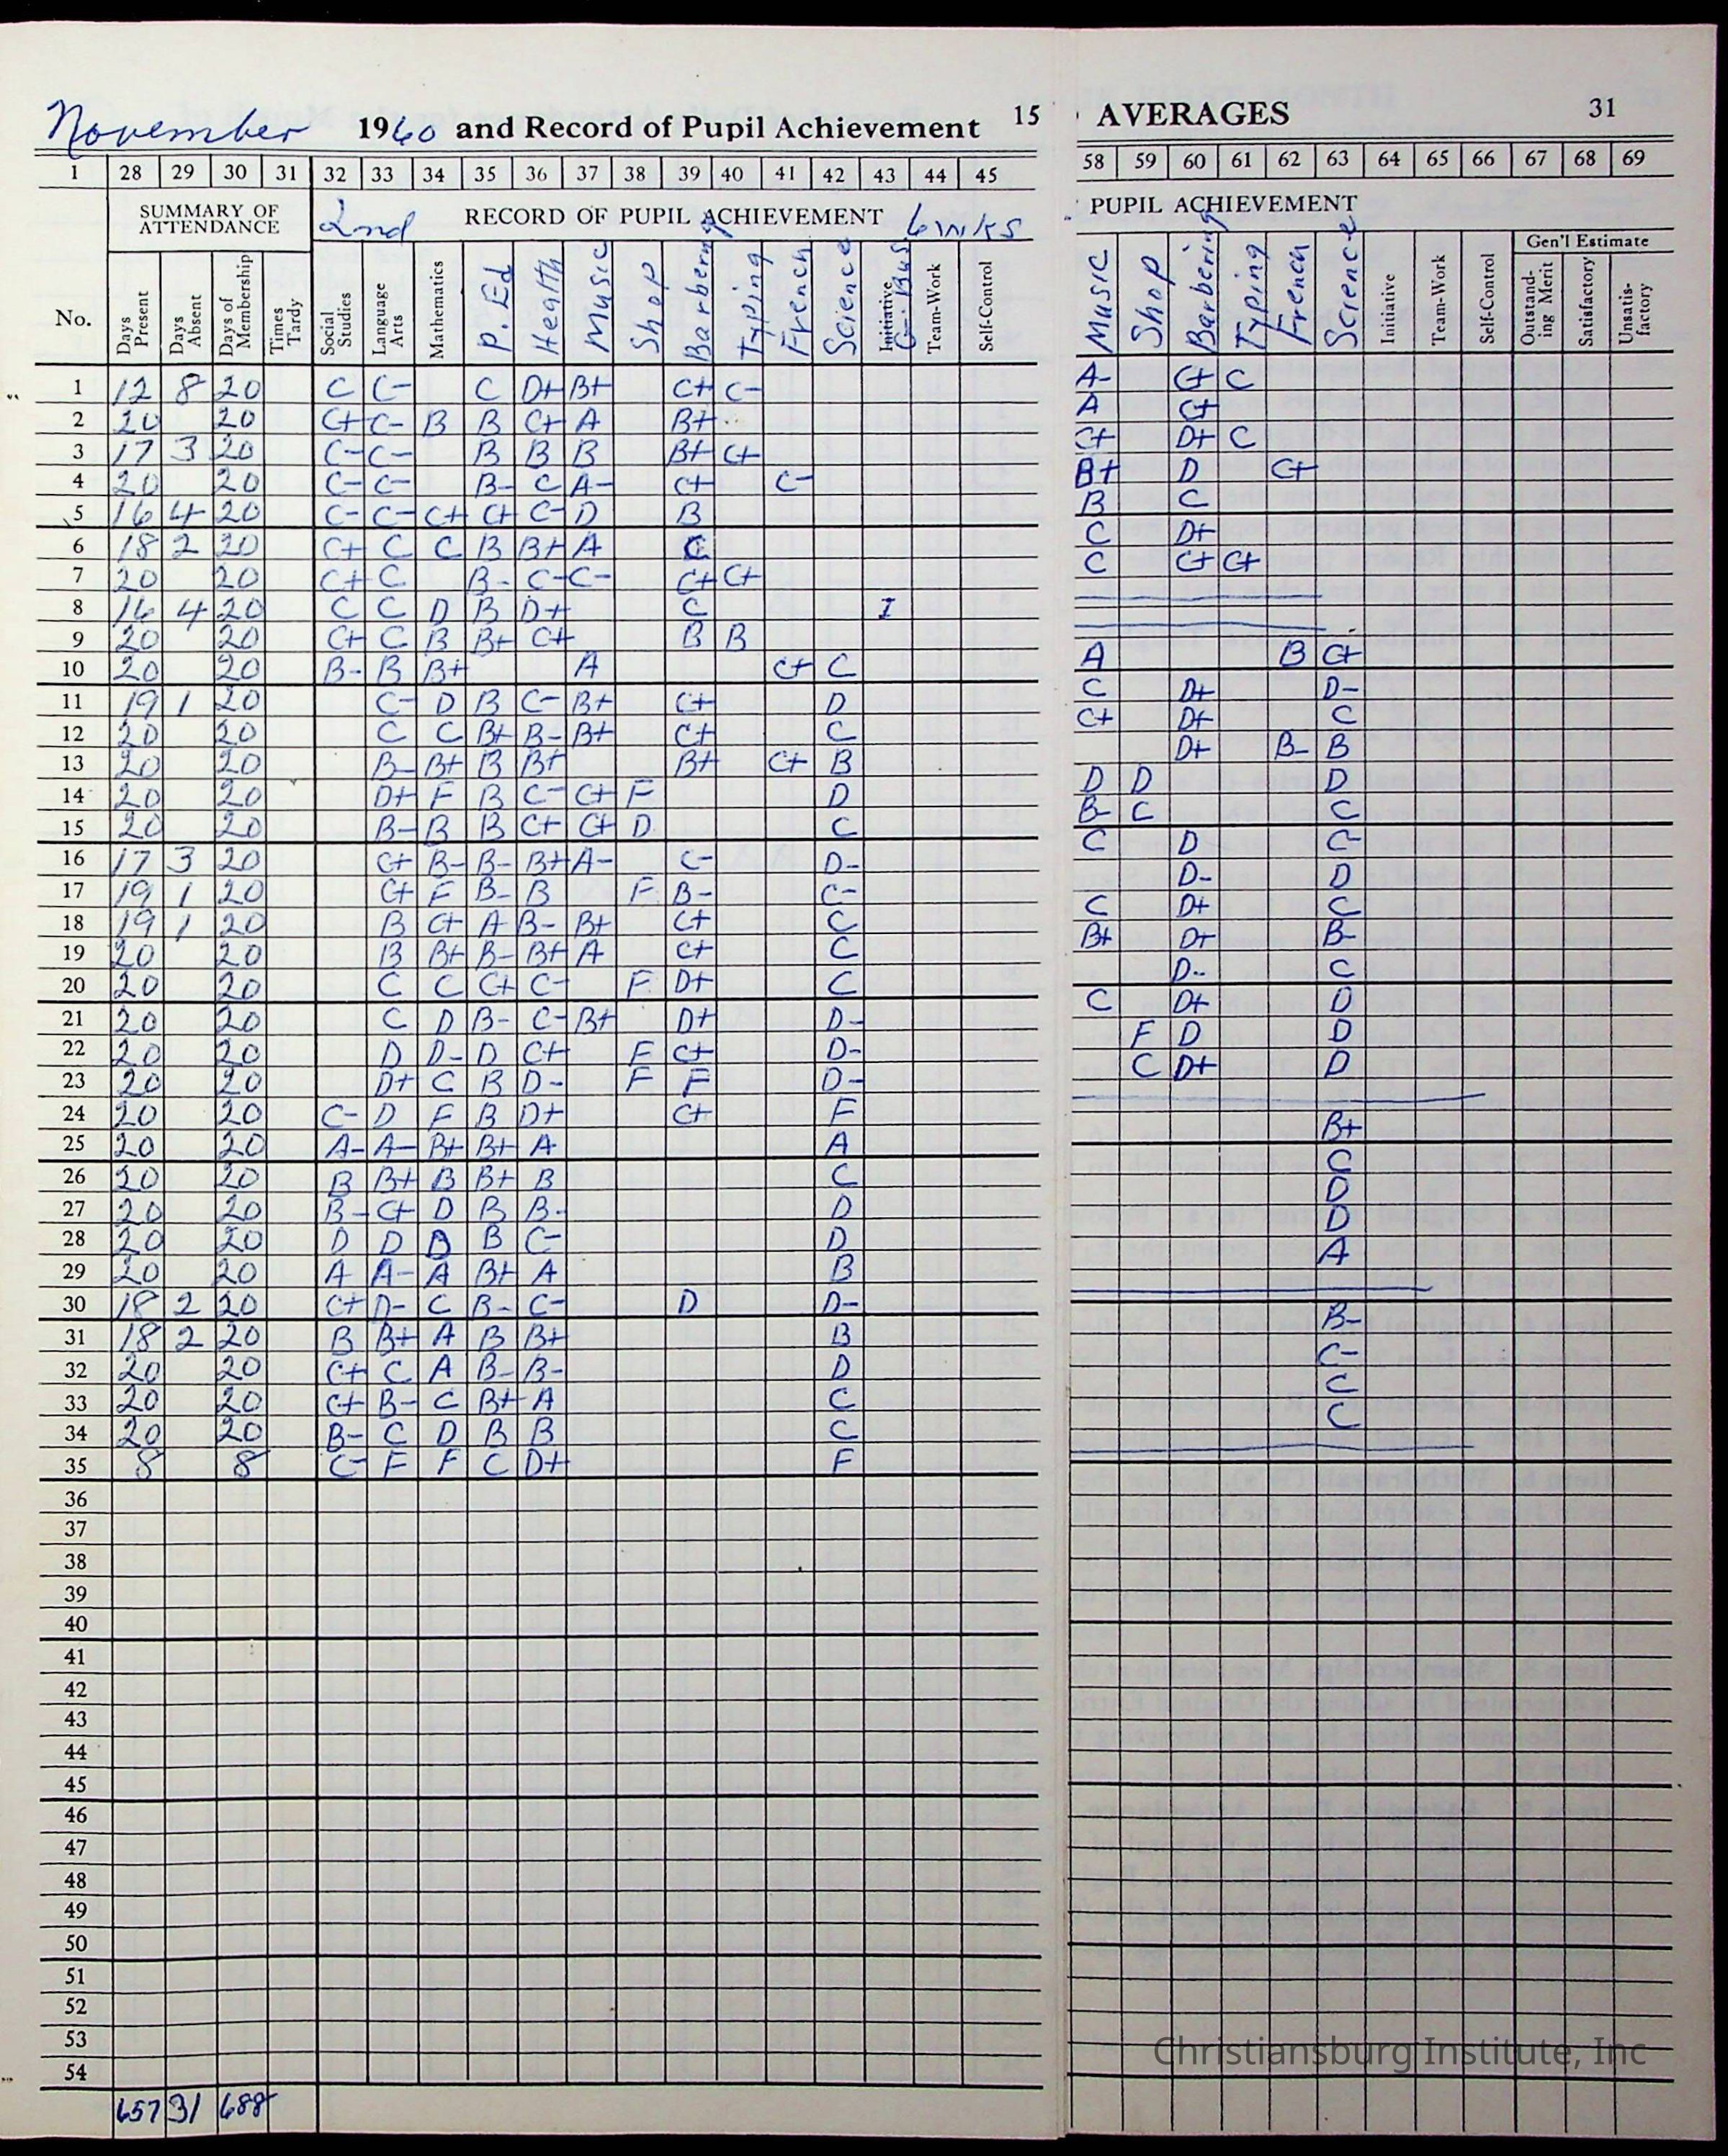 November 1960 and Record of Pupil Achievement 15
1 28 29 30 31 32 33 34 35 36 37 38 39 40 41 42 43 44 45
SUMMARY OF ATTENDANCE 2nd RECORD OF PUPIL ACHIEVEMENT 6 wks
No. Days Present Days Absent Days of Membership Times Tardy Social Studies Language Arts Mathematics P. Ed Health Music Shop Barbering Typing French Science Initiative G. Bus Team-Work Self-Control
1 12 8 20 C C- C D+ B+ C+ C-
2 20 20 C+ C- B B C+ A B+
3 17 3 20 C- C- B B B B+ C+
4 20 20 C- C- B- C A- C+ C-
5 16 4 20 C- C- C+ C+ C- D B
6 18 2 20 C+ C C B B+ A C
7 20 20 C+ C B- C- C- C+ C+
8 16 4 20 C C D B D+ C I
9 20 20 C+ C B B+ C+ B B
10 20 20 B- B B+ A C+ C
11 19 1 20 C- D B C- B+ C+ D
12 20 20 C C B+ B- B+ C+ C
13 20 20 B- B+ B B+ B+ C+ B
14 20 20 D+ F B C- C+ F D
15 20 20 B- B B C+ C+ D C
16 17 3 20 C+ B- B- B+ A- C- D-
17 19 1 20 C+ F B- B F B- C-
18 19 1 20 B C+ A B- B+ C+ C
19 20 20 B B+ B- B+ A C+ C
20 20 20 C C C+ C- F D+ C
21 20 20 C D B- C- B+ D+ D-
22 20 20 D D- D C+ F C+ D-
23 20 20 D+ C B D- F F D-
24 20 20 C- D F B D+ C+ F
25 20 20 A- A- B+ B+ A A
26 20 20 B B+ B B+ B C
27 20 20 B- C+ D B B- D
28 20 20 D D D B C- D
29 20 20 A A- A B+ A B
30 18 2 20 C+ D- C B- C- D D-
31 18 2 20 B B+ A B B+ B
32 20 20 C+ C A B- B- D
33 20 20 C+ B- C B+ A C
34 20 20 B- C D B B C
35 8 8 C- F F C D+ F
36
37
38
39
40
41
42
43
44
45
46
47
48
49
50
51
52
53
54
657 31 688
AVERAGES 31
58 59 60 61 62 63 64 65 66 67 68 69
PUPIL ACHIEVEMENT
Gen'l Estimate
Music Shop Barbering Typing French Science Initiative Team-Work Self-Control Outstanding Merit Satisfactory Unsatisfactory
A- C+ C
A C+
C+ D+ C
B+ D C+
B C
C D+
C C+ C+
A B C+
C D+ D-
C+ D+ C
D+ B- B
D D D
B- C C
C D C-
D- D
C D+ C
B+ D+ B-
D- C
C D+ D
F D D
C D+ D
B+
C
D
D
A
B-
C-
C
C
Christiansburg Institute, Inc